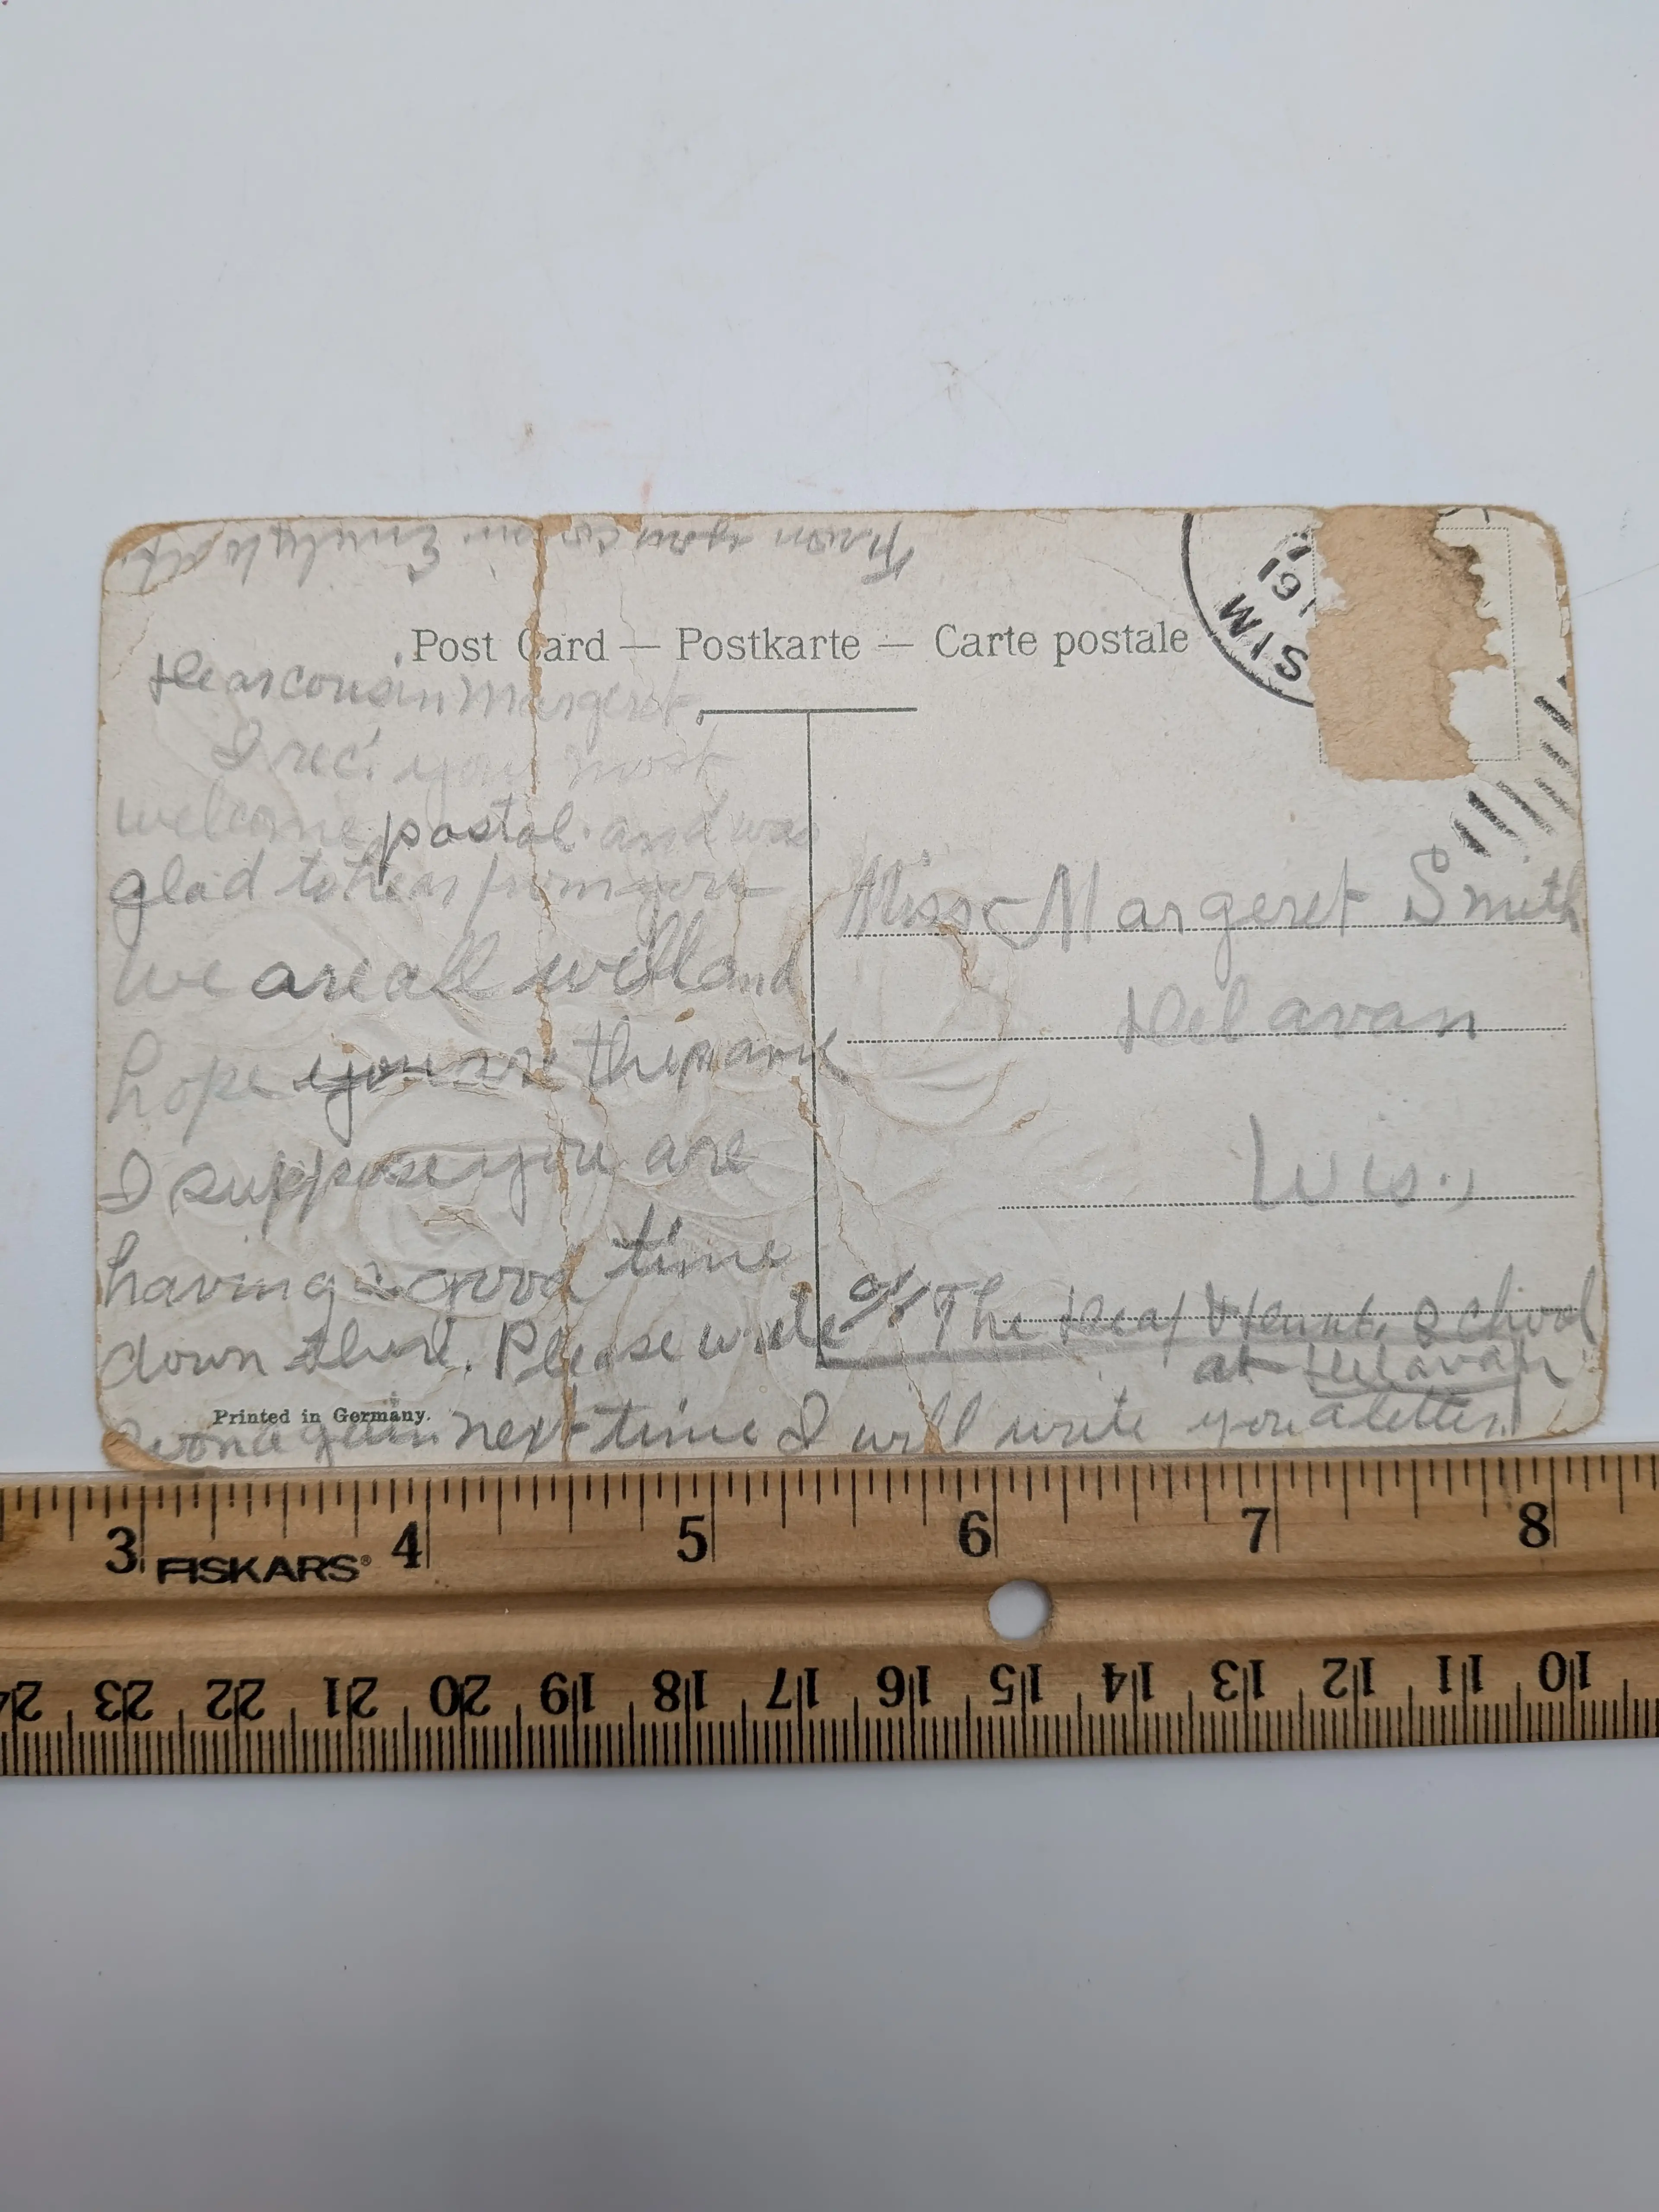 From your cousin Emily
Post Card — Postkarte — Carte postale
WIS
191
Dear cousin Margeret,
I rec'. your most
welcome postal and was
glad to hear from you
We are all well and
hope you are the same
I suppose you are
having a good time
down there. Please write
soon again next time I will write you a letter.
Printed in Germany.
Miss Margeret Smith
Delavan
Wis.,
of The Deaf School
at Delavan
3 4 5 6 7 8
FISKARS®
24 23 22 21 20 19 18 17 16 15 14 13 12 11 10